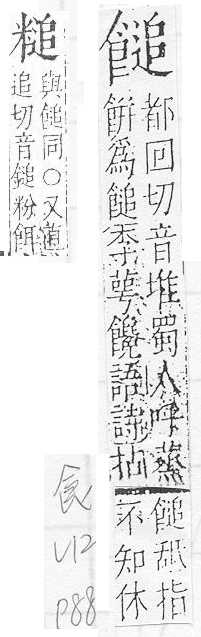 䭔
都回切音堆蜀人呼蒸
餅爲䭔李萼饞語詩拈
䭔舐指
不知休
䊚
與䭔同○又
追切音鎚粉餌
食
U12
P88